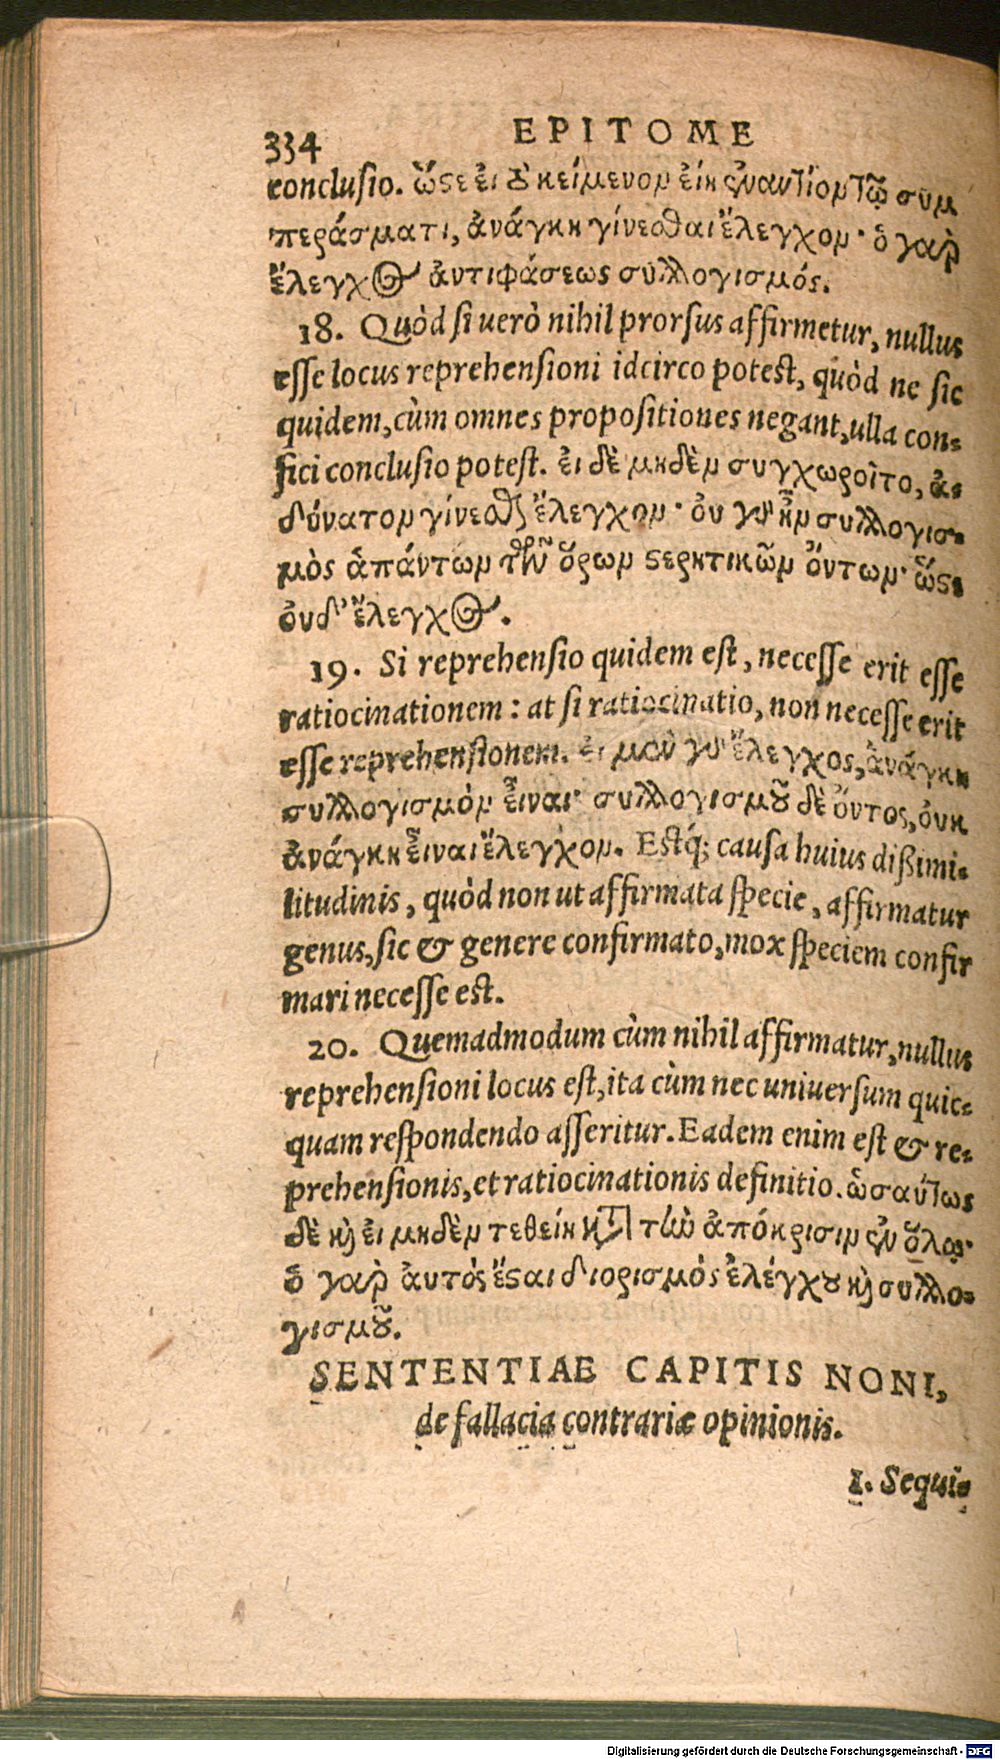 334 EPITOME
conclusio. ὥστε εἰ τὸ κείμενον εἴη ἐναντίον τῷ συμ
περάσματι, ἀνάγκη γίνεσθαι ἔλεγχον· ὁ γὰρ
ἔλεγχος ἀντιφάσεως συλλογισμός.
18. Quòd si uerò nihil prorsus affirmetur, nullus
esse locus reprehensioni idcirco potest, quòd ne sic
quidem, cùm omnes propositiones negant, ulla con-
fici conclusio potest. εἰ δὲ μηδὲν συγχωροῖτο, ἀ-
δύνατον γίνεσθαι ἔλεγχον· οὐ γὰρ ἦν συλλογισ-
μὸς ἁπάντων τῶν ὅρων στερητικῶν ὄντων· ὥστε
οὐδ' ἔλεγχος.
19. Si reprehensio quidem est, necesse erit esse
ratiocinationem: at si ratiocinatio, non necesse erit
esse reprehensionem. εἰ μὲν γὰρ ἔλεγχος, ἀνάγκη
συλλογισμὸν εἶναι· συλλογισμοῦ δὲ ὄντος, οὐκ
ἀνάγκη εἶναι ἔλεγχον. Estq́; causa huius dißimi-
litudinis, quòd non ut affirmata specie, affirmatur
genus, sic & genere confirmato, mox speciem confir
mari necesse est.
20. Quemadmodum cùm nihil affirmatur, nullus
reprehensioni locus est, ita cùm nec uniuersum quic-
quam respondendo asseritur. Eadem enim est & re-
prehensionis, et ratiocinationis definitio. ὡσαύτως
δὲ καὶ εἰ μηδὲν τεθείη κατὰ τὴν ἀπόκρισιν ἐν ὅλῳ·
ὁ γὰρ αὐτὸς ἔσται διορισμὸς ἐλέγχου καὶ συλλο-
γισμοῦ.
SENTENTIAE CAPITIS NONI,
de fallacia contrariæ opinionis.
1. Sequi-
Digitalisierung gefördert durch die Deutsche Forschungsgemeinschaft - DFG